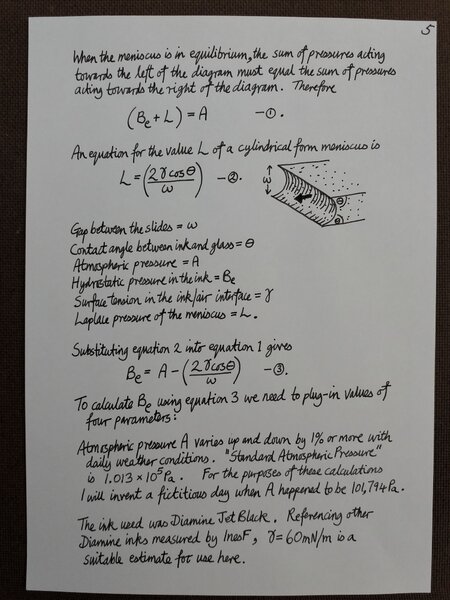 5
When the meniscus is in equilibrium, the sum of pressures acting
towards the left of the diagram must equal the sum of pressures
acting towards the right of the diagram. Therefore
(Be + L) = A —①.
An equation for the value L of a cylindrical form meniscus is
L = (2γcosθ/ω) —②.
ω
θ
θ
Gap between the slides = ω
Contact angle between ink and glass = θ
Atmospheric pressure = A
Hydrostatic pressure in the ink = Be
Surface tension in the ink/air interface = γ
Laplace pressure of the meniscus = L.
Substituting equation 2 into equation 1 gives
Be = A - (2γcosθ/ω) —③.
To calculate Be using equation 3 we need to plug-in values of
four parameters:
Atmospheric pressure A varies up and down by 1% or more with
daily weather conditions. "Standard Atmospheric Pressure"
is 1.013 × 10⁵ Pa. For the purposes of these calculations
I will invent a fictitious day when A happened to be 101,794 Pa.
The ink used was Diamine Jet Black. Referencing other
Diamine inks measured by InesF, γ = 60mN/m is a
suitable estimate for use here.